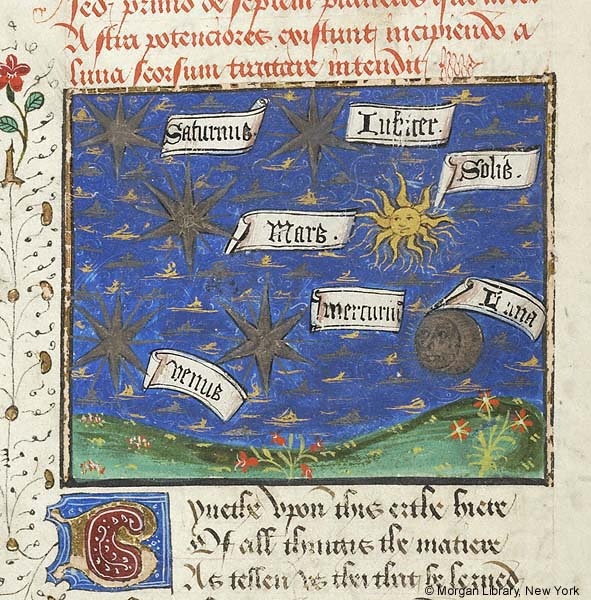 Sed primo de septem planetis que inter
Astra potenciores existunt incipiendo a
luna seorsum tractare intendit
Saturnus.
Iubiter.
Solis.
Mars.
mercurius
Luna
venus
Bynethe vpon this erthe hiere
Of all thinges the matiere
As tellen vs thei that be lerned
© Morgan Library, New York